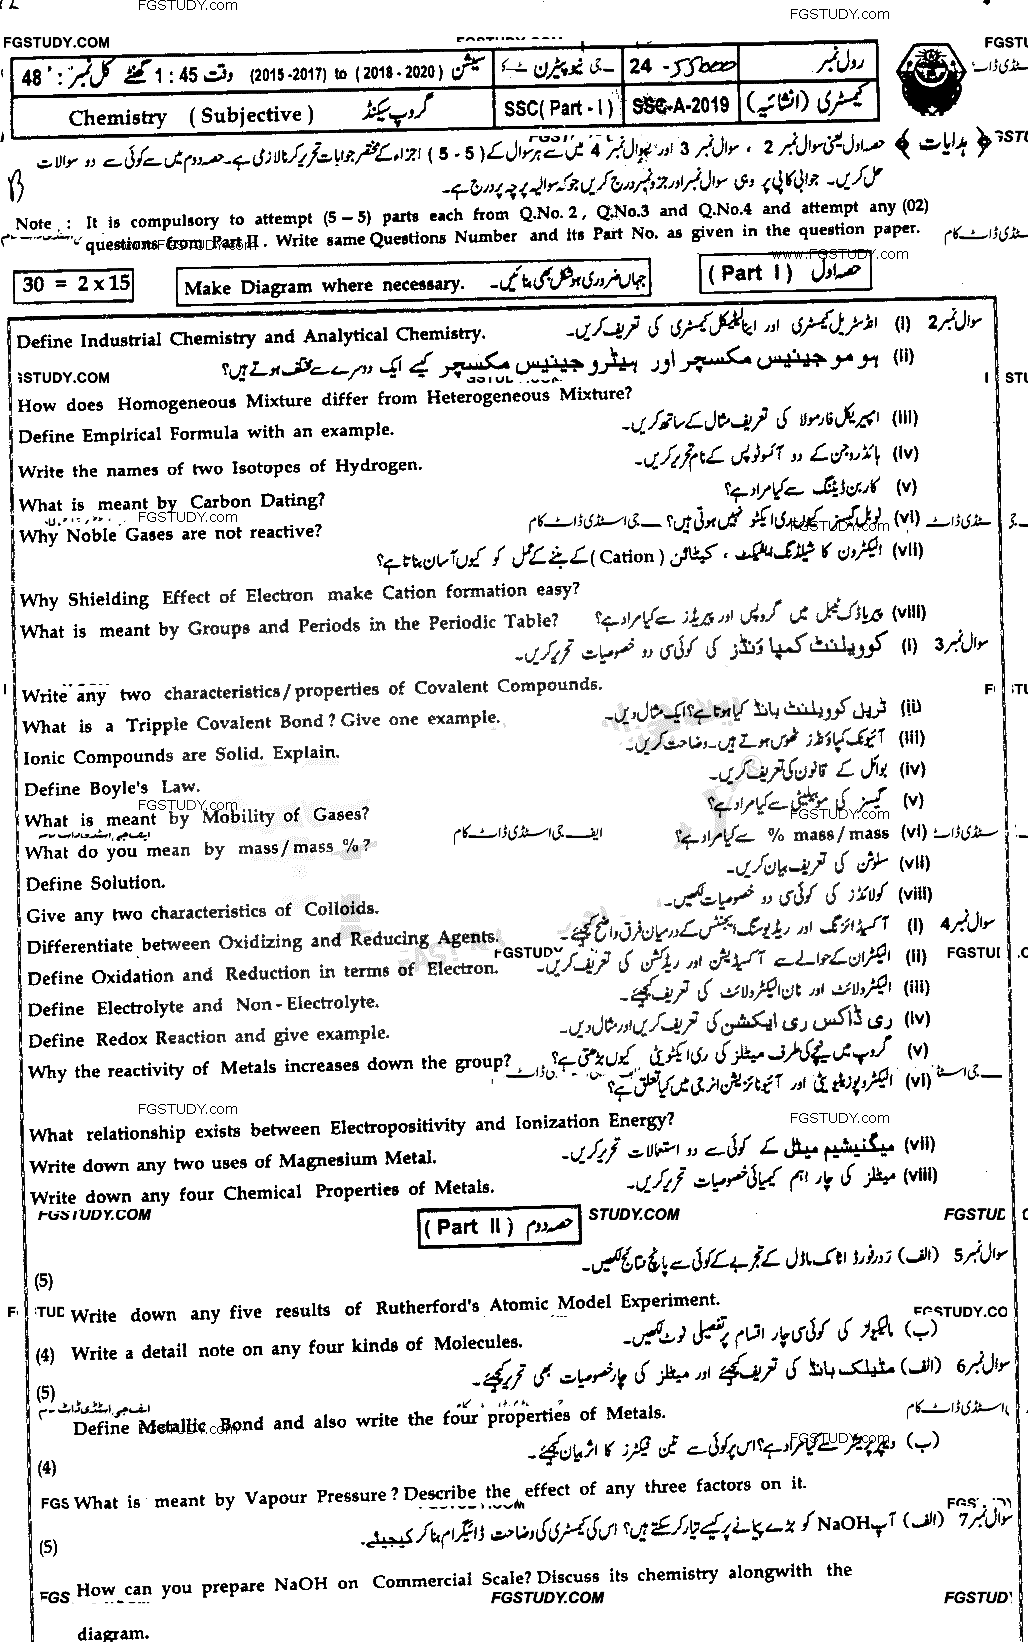 FGSTUDY.com
FGSTUDY.com
FGSTUDY.COM
FGSTU
رول نمبر
24 -55000
سیشن (2015-2017) to (2018-2020) وقت 1:45 گھنٹے کل نمبر: 48
کیمسٹری (انشائیہ)
SSC-A-2019
SSC(Part-I)
گروپ سیکنڈ
Chemistry (Subjective)
﴿ ہدایات ﴾ حصہ اول یعنی سوال نمبر 2 ، سوال نمبر 3 اور سوال نمبر 4 میں سے ہر سوال کے (5 - 5) اجزاء کے مختصر جوابات تحریر کرنا لازمی ہے۔ حصہ دوم میں سے کوئی سے دو سوالات
حل کریں۔ جوابی کاپی پر وہی سوال نمبر اور جزو نمبر درج کریں جو کہ سوالیہ پرچہ پر درج ہے۔
Note : It is compulsory to attempt (5 – 5) parts each from Q.No. 2 , Q.No.3 and Q.No.4 and attempt any (02)
questions from Part II . Write same Questions Number and its Part No. as given in the question paper.
www.FGSTUDY.com
30 = 2 x 15
Make Diagram where necessary. جہاں ضروری ہو شکل بھی بنائیں۔
(Part I) حصہ اول
سوال نمبر 2 (i) انڈسٹریل کیمسٹری اور اینالیٹیکل کیمسٹری کی تعریف کریں۔
Define Industrial Chemistry and Analytical Chemistry.
(ii) ہومو جینیس مکسچر اور ہیٹرو جینیس مکسچر کیسے ایک دوسرے سے مختلف ہوتے ہیں؟
FGSTUDY.COM
How does Homogeneous Mixture differ from Heterogeneous Mixture?
(iii) ایمپیریکل فارمولا کی تعریف مثال کے ساتھ کریں۔
Define Empirical Formula with an example.
(iv) ہائڈروجن کے دو آئسوٹوپس کے نام تحریر کریں۔
Write the names of two Isotopes of Hydrogen.
(v) کاربن ڈیٹنگ سے کیا مراد ہے؟
What is meant by Carbon Dating?
FGSTUDY.com
(vi) نوبل گیسز کیوں ری ایکٹو نہیں ہوتی ہیں؟
FGSTUDY.com
Why Noble Gases are not reactive?
(vii) الیکٹرون کا شیلڈنگ ایفیکٹ ، کیٹائن (Cation) کے بننے کے عمل کو کیوں آسان بناتا ہے؟
Why Shielding Effect of Electron make Cation formation easy?
(viii) پیریاڈک ٹیبل میں گروپس اور پیریڈز سے کیا مراد ہے؟
What is meant by Groups and Periods in the Periodic Table?
سوال نمبر 3 (i) کوویلنٹ کمپاؤنڈز کی کوئی سی دو خصوصیات تحریر کریں۔
Write any two characteristics/properties of Covalent Compounds.
(ii) ٹرپل کوویلنٹ بانڈ کیا ہوتا ہے؟ ایک مثال دیں۔
What is a Tripple Covalent Bond ? Give one example.
(iii) آئیونک کمپاؤنڈز ٹھوس ہوتے ہیں۔ وضاحت کریں۔
Ionic Compounds are Solid. Explain.
(iv) بوائل کے قانون کی تعریف کریں۔
Define Boyle's Law.
FGSTUDY.com
(v) گیسز کی موبیلیٹی سے کیا مراد ہے؟
FGSTUDY.com
What is meant by Mobility of Gases?
(vi) mass/mass % سے کیا مراد ہے؟
What do you mean by mass/mass % ?
(vii) سلوشن کی تعریف بیان کریں۔
Define Solution.
(viii) کولائڈز کی کوئی سی دو خصوصیات لکھیں۔
Give any two characteristics of Colloids.
سوال نمبر 4 (i) آکسیڈائزنگ اور ریڈیوسنگ ایجنٹس کے درمیان فرق واضح کیجئے۔
Differentiate between Oxidizing and Reducing Agents.
FGSTUDY
FGSTUDY.COM
(ii) الیکٹران کے حوالے سے آکسیڈیشن اور ریڈکشن کی تعریف کریں۔
Define Oxidation and Reduction in terms of Electron.
(iii) الیکٹرولائٹ اور نان الیکٹرولائٹ کی تعریف کیجئے۔
Define Electrolyte and Non-Electrolyte.
(iv) ری ڈاکس ری ایکشن کی تعریف کریں اور مثال دیں۔
Define Redox Reaction and give example.
(v) گروپ میں نیچے کی طرف میٹلز کی ری ایکٹیویٹی کیوں بڑھتی ہے؟
Why the reactivity of Metals increases down the group?
(vi) الیکٹروپوزیٹیویٹی اور آئیونائزیشن انرجی میں کیا تعلق ہے؟
FGSTUDY.com
FGSTUDY.com
What relationship exists between Electropositivity and Ionization Energy?
(vii) میگنیشیم میٹل کے کوئی سے دو استعمالات تحریر کریں۔
Write down any two uses of Magnesium Metal.
(viii) میٹلز کی چار اہم کیمیائی خصوصیات تحریر کریں۔
Write down any four Chemical Properties of Metals.
FGSTUDY.COM
(Part II) حصہ دوم
STUDY.COM
FGSTUD
سوال نمبر 5 (الف) ردرفورڈ اٹامک ماڈل کے تجربے کے کوئی سے پانچ نتائج لکھیں۔
(5)
Write down any five results of Rutherford's Atomic Model Experiment.
FGSTUDY.CO
(ب) مالیکیولز کی کوئی سی چار اقسام پر تفصیلی نوٹ لکھیں۔
(4) Write a detail note on any four kinds of Molecules.
سوال نمبر 6 (الف) مٹیلک بانڈ کی تعریف کیجئے اور میٹلز کی چار خصوصیات بھی تحریر کیجئے۔
(5)
Define Metallic Bond and also write the four properties of Metals.
FGSTUDY.com
FGSTUDY.com
(ب) ویپر پریشر سے کیا مراد ہے؟ اس پر کوئی سے تین فیکٹرز کا اثر بیان کیجئے۔
(4)
What is meant by Vapour Pressure ? Describe the effect of any three factors on it.
سوال نمبر 7 (الف) آپ NaOH کو بڑے پیمانے پر کیسے تیار کر سکتے ہیں؟ اس کی کیمسٹری کی وضاحت ڈائیگرام بنا کر کیجیئے۔
(5)
How can you prepare NaOH on Commercial Scale? Discuss its chemistry alongwith the
FGS
FGSTUDY.COM
FGSTUD
diagram.